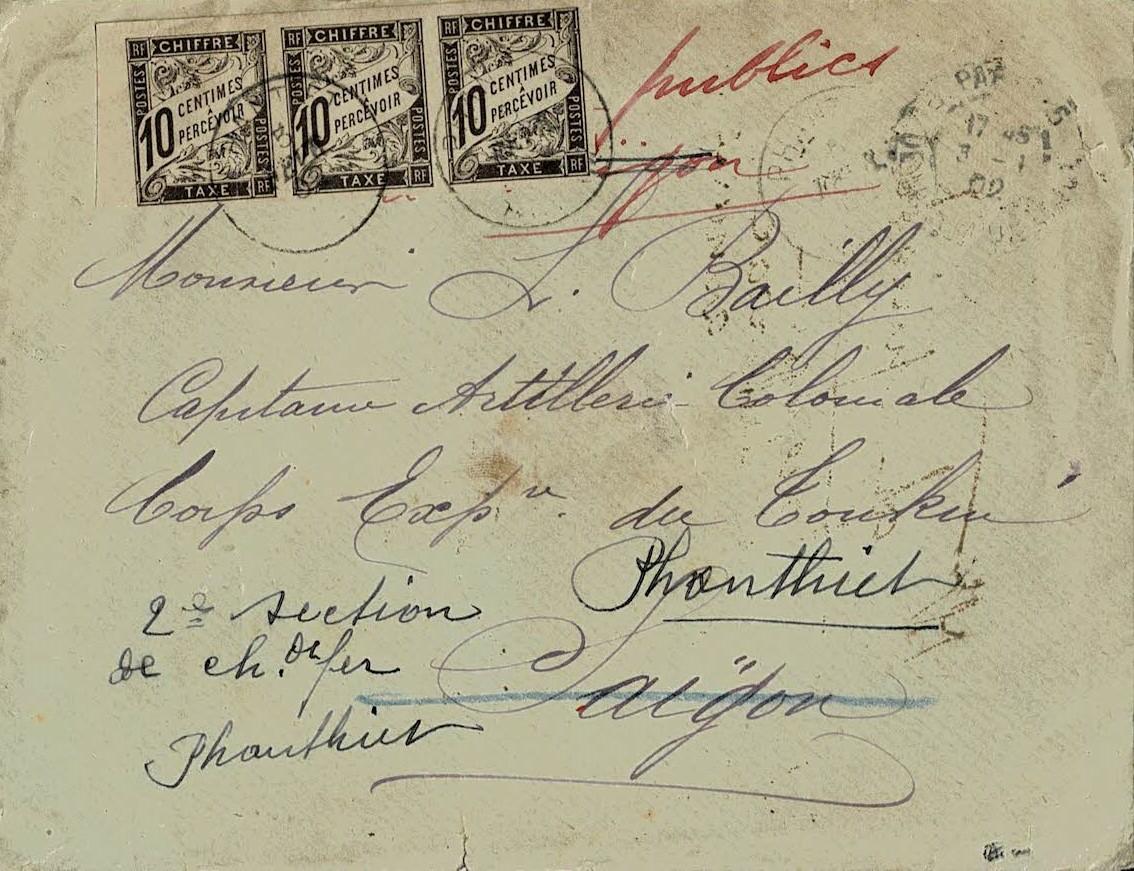 RF CHIFFRE RF CHIFFRE RF CHIFFRE
POSTES 10 CENTIMES A PERCEVOIR POSTES
POSTES 10 CENTIMES A PERCEVOIR POSTES
POSTES 10 CENTIMES A PERCEVOIR POSTES
TAXE RF TAXE RF TAXE RF
publics
PAR
17
3 - 1
02
Monsieur L. Bailly
Capitaine Artillerie Coloniale
Corps Expre du Tonkin
Phanthiet
2e section
de ch. de fer
Saïgon
Phanthiet